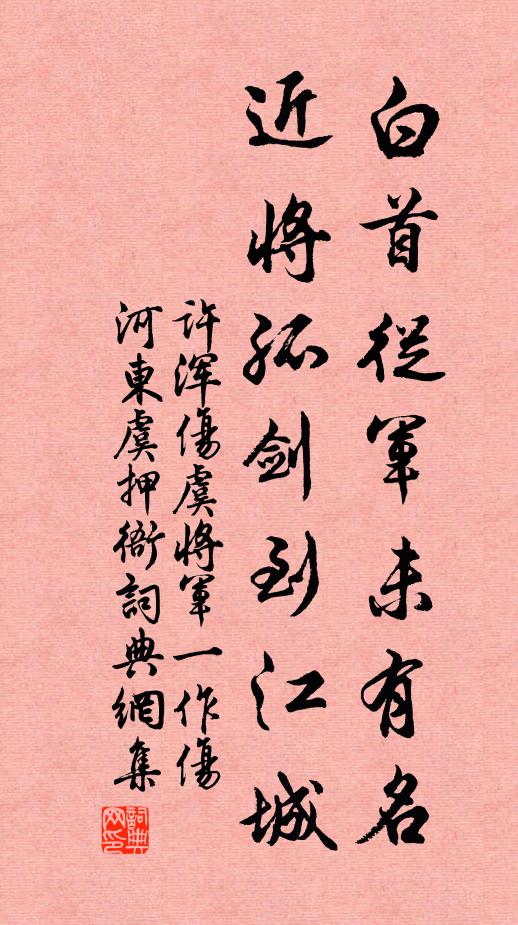 白首從軍未有名
近將孤劍到江城
許渾傷虞將軍一作傷
河東虞押衙詞典網集
詞典
网印